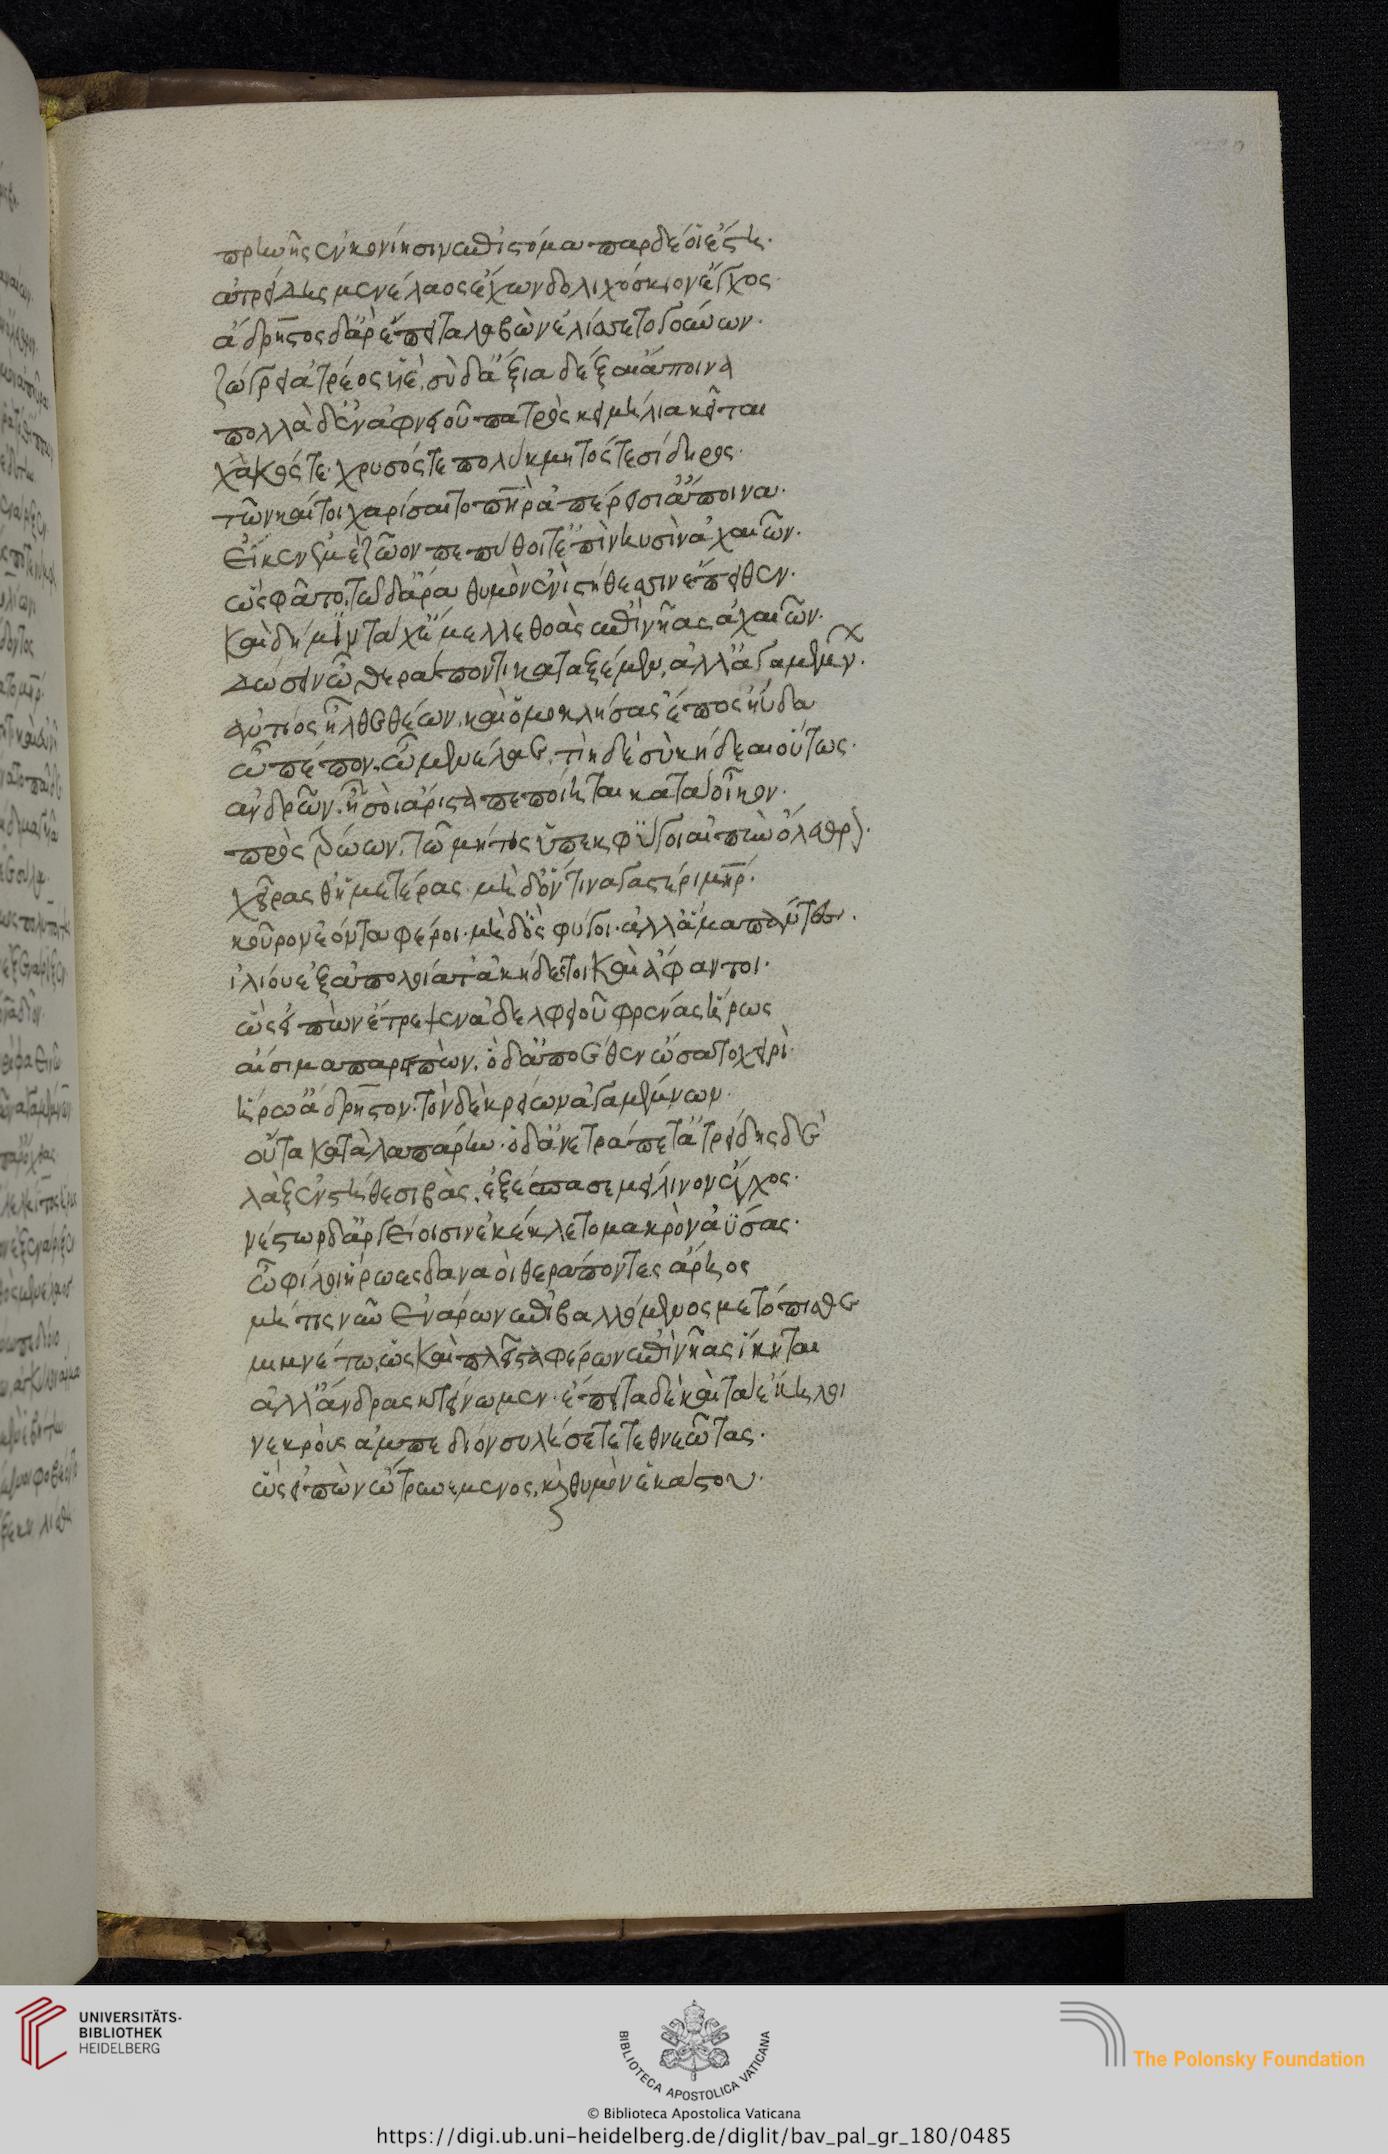 πρηνὴς ἐν κονίησιν ἐπὶ στόμα· παρ δέ οἱ ἔστη·
ἀτρείδης μενέλαος ἔχων δολιχόσκιον ἔγχος·
ἄδρηστος δ' ἄρ' ἔπειτα λαβὼν ἐλίσσετο γούνων·
ζώγρει ἀτρέος υἱέ, σὺ δ' ἄξια δέξαι ἄποινα
πολλὰ δ' ἐν ἀφνειοῦ πατρὸς κειμήλια κεῖται
χαλκός τε· χρυσός τε πολύκμητός τε σίδηρος·
τῶν καί τοι χαρίσαιτο πατὴρ ἀπερείσι' ἄποινα·
εἴ κεν ἐμὲ ζωὸν πεπύθοιτ' ἐπὶ νηυσὶν ἀχαιῶν·
ὣς φάτο, τῷ δ' ἄρα θυμὸν ἐνὶ στήθεσσιν ἔπειθεν·
καὶ δή μιν τάχ' ἔμελλε θοὰς ἐπὶ νῆας ἀχαιῶν·
δώσειν ᾧ θεράποντι καταξέμεν, ἀλλ' ἀγαμέμνων·
ἀντίος ἦλθε θέων, καὶ ὁμοκλήσας ἔπος ηὔδα
ὦ πέπον, ὦ μενέλαε, τίη δὲ σὺ κήδεαι οὕτως·
ἀνδρῶν, ἦ σοὶ ἄριστα πεποίηται κατὰ οἶκον·
πρὸς τρώων, τῶν μήτις ὑπεκφύγοι αἰπὺν ὄλεθρον·
χεῖρας θ' ἡμετέρας· μηδ' ὅντινα γαστέρι μήτηρ·
κοῦρον ἐόντα φέροι· μηδ' ὃς φύγοι· ἀλλ' ἅμα πάντες·
ἰλίου ἐξαπολοίατ' ἀκήδεστοι καὶ ἄφαντοι·
ὣς εἰπὼν ἔτρεψεν ἀδελφειοῦ φρένας ἥρως
αἴσιμα παρειπών, ὁ δ' ἀπὸ ἕθεν ὤσατο χειρὶ·
ἥρω' ἄδρηστον· τὸν δὲ κρείων ἀγαμέμνων·
οὖτα κατὰ λαπάρην· ὁ δ' ἀνετράπετ' ἀτρείδης δὲ
λὰξ ἐν στήθεσι βὰς, ἐξέσπασε μείλινον ἔγχος·
νέστωρ δ' ἀργείοισιν ἐκέκλετο μακρὸν ἀΰσας·
ὦ φίλοι ἥρωες δαναοὶ θεράποντες ἄρηος
μή τις νῦν ἐνάρων ἐπιβαλλόμενος μετόπισθε
μιμνέτω, ὥς καὶ πλεῖστα φέρων ἐπὶ νῆας ἵκηται
ἀλλ' ἄνδρας κτείνωμεν· ἔπειτα δὲ καὶ τὰ ἕκηλοι
νεκροὺς ἀμπεδίον συλήσετε τεθνεῶτας·
ὣς εἰπὼν ὤτρυνε μένος, καὶ θυμὸν ἑκάστου·
UNIVERSITÄTS-
BIBLIOTHEK
HEIDELBERG
BIBLIOTECA APOSTOLICA VATICANA
The Polonsky Foundation
© Biblioteca Apostolica Vaticana
https://digi.ub.uni-heidelberg.de/diglit/bav_pal_gr_180/0485